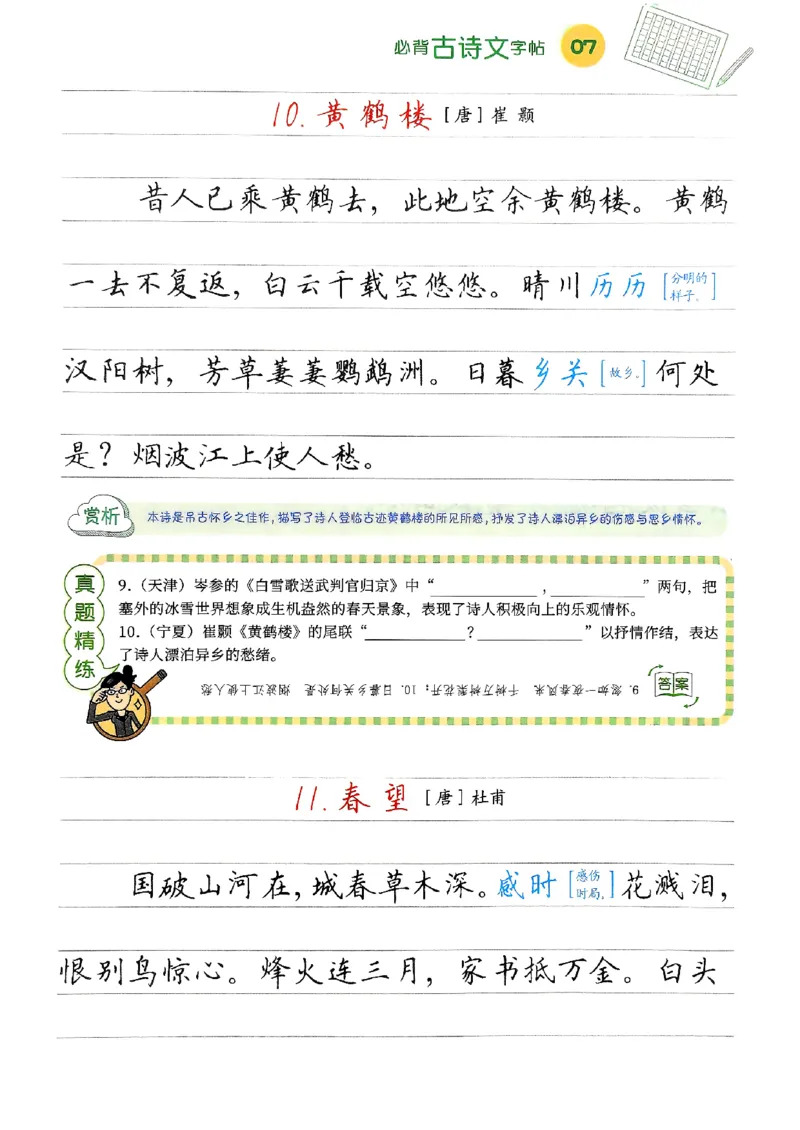 必背古诗文字帖 07
10.黄鹤楼[唐]崔颢
昔人已乘黄鹤去，此地空余黄鹤楼。黄鹤
一去不复返，白云千载空悠悠。晴川历历[分明的样子。]
汉阳树，芳草萋萋鹦鹉洲。日暮乡关[故乡。]何处
是？烟波江上使人愁。
赏析
本诗是吊古怀乡之佳作，描写了诗人登临古迹黄鹤楼的所见所感，抒发了诗人漂泊异乡的伤感与思乡情怀。
真题精练
9.（天津）岑参的《白雪歌送武判官归京》中“____________，____________”两句，把
塞外的冰雪世界想象成生机盎然的春天景象，表现了诗人积极向上的乐观情怀。
10.（宁夏）崔颢《黄鹤楼》的尾联“____________？____________”以抒情作结，表达
了诗人漂泊异乡的愁绪。
答案
9. 忽如一夜春风来 千树万树梨花开；10. 日暮乡关何处是 烟波江上使人愁
11.春望[唐]杜甫
国破山河在，城春草木深。感时[感伤时局。]花溅泪，
恨别鸟惊心。烽火连三月，家书抵万金。白头